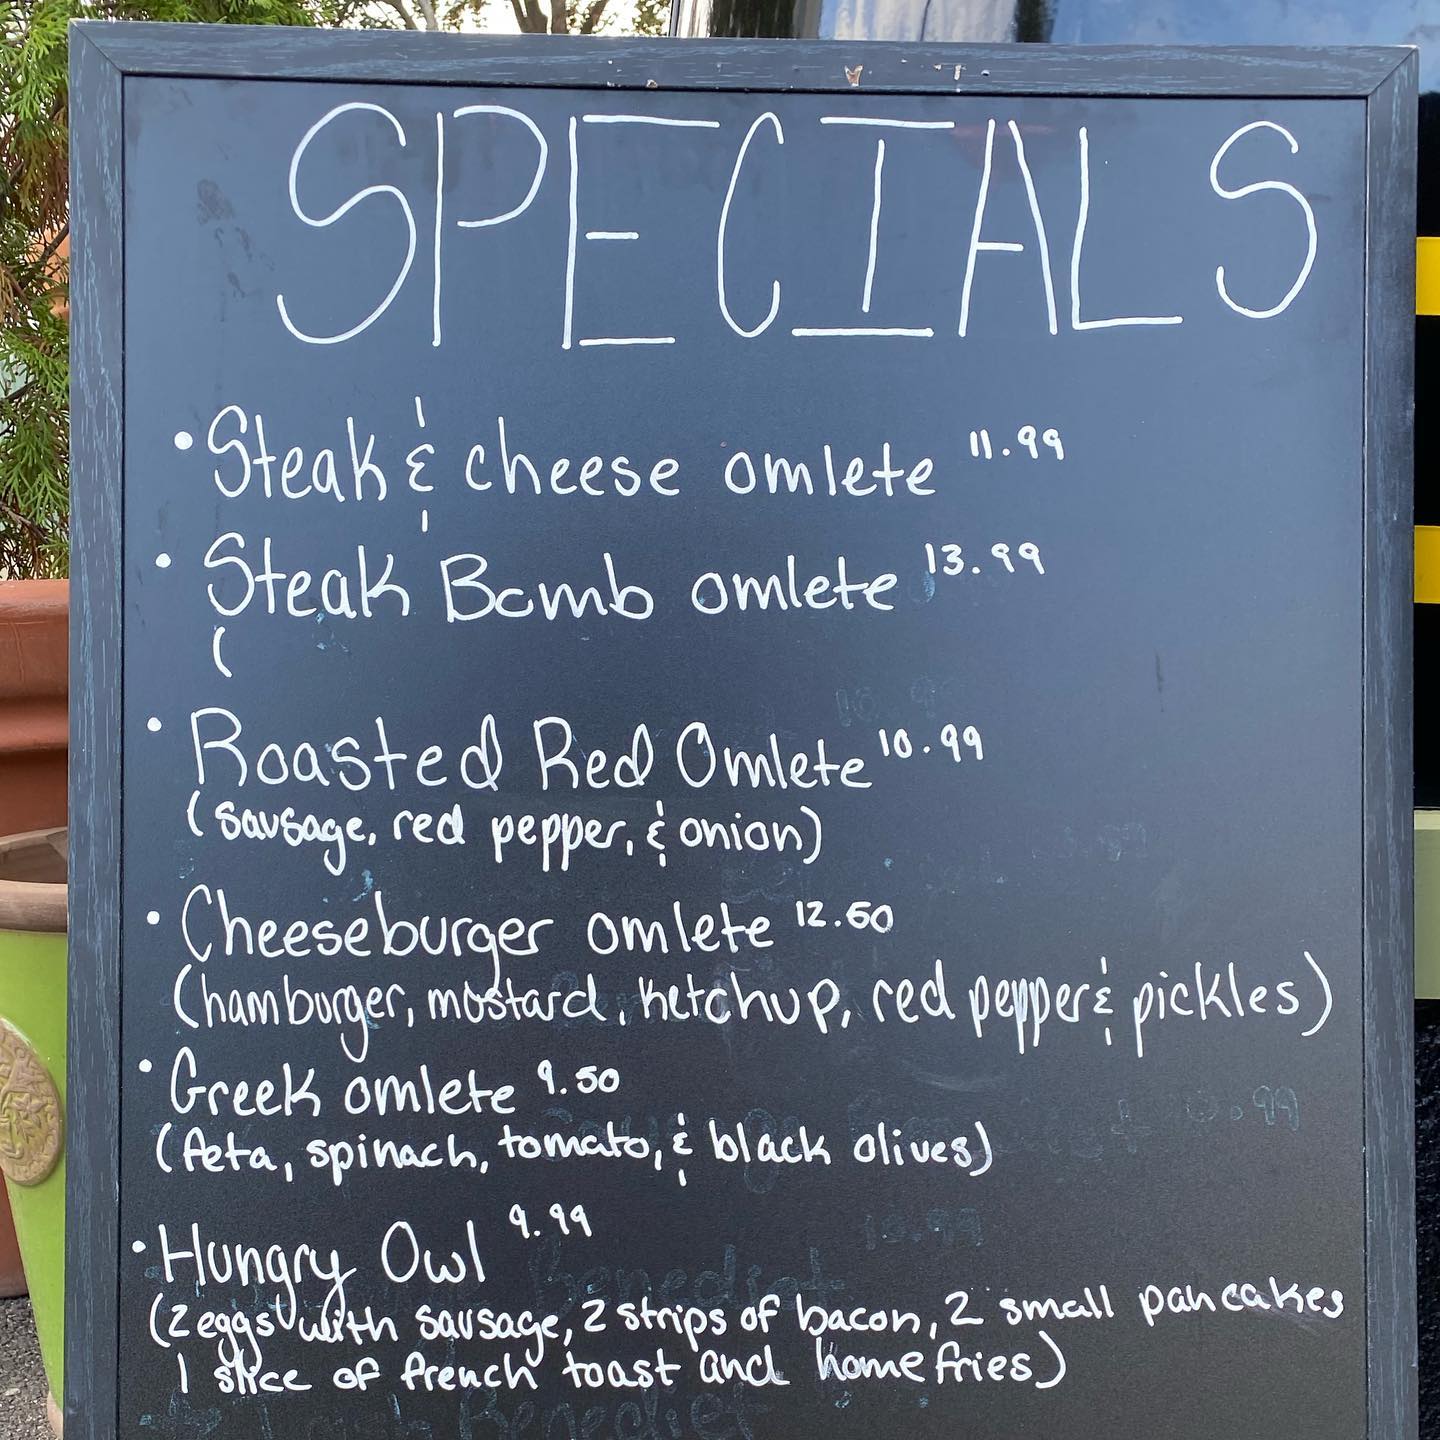 SPECIALS
• Steak & cheese omlete 11.99
• Steak Bomb omlete 13.99
(
• Roasted Red Omlete 10.99
(sausage, red pepper, & onion)
• Cheeseburger omlete 12.50
(hamburger, mustard, ketchup, red pepper & pickles)
• Greek omlete 9.50
(feta, spinach, tomato, & black olives)
• Hungry Owl 9.99
(2 eggs with sausage, 2 strips of bacon, 2 small pancakes
1 slice of french toast and homefries)